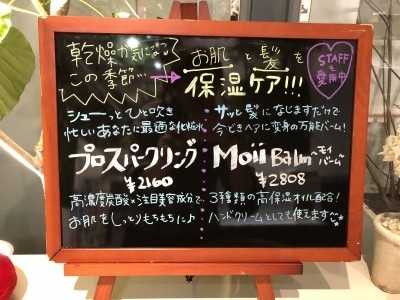 乾燥が気になる
この季節…
お肌と髪を
保湿ケア!!!
STAFF
も
愛用中
シューっとひと吹き
忙しいあなたに最適な化粧水
プロスパークリング
¥2160
高濃度炭酸×注目美容成分で
お肌をしっとりもちもちに♪
サッと髪になじますだけで
今どきヘアに変身の万能バーム!
Moii Balm モイバーム
¥2808
3種類の高保湿オイル配合!
ハンドクリームとしても使えます